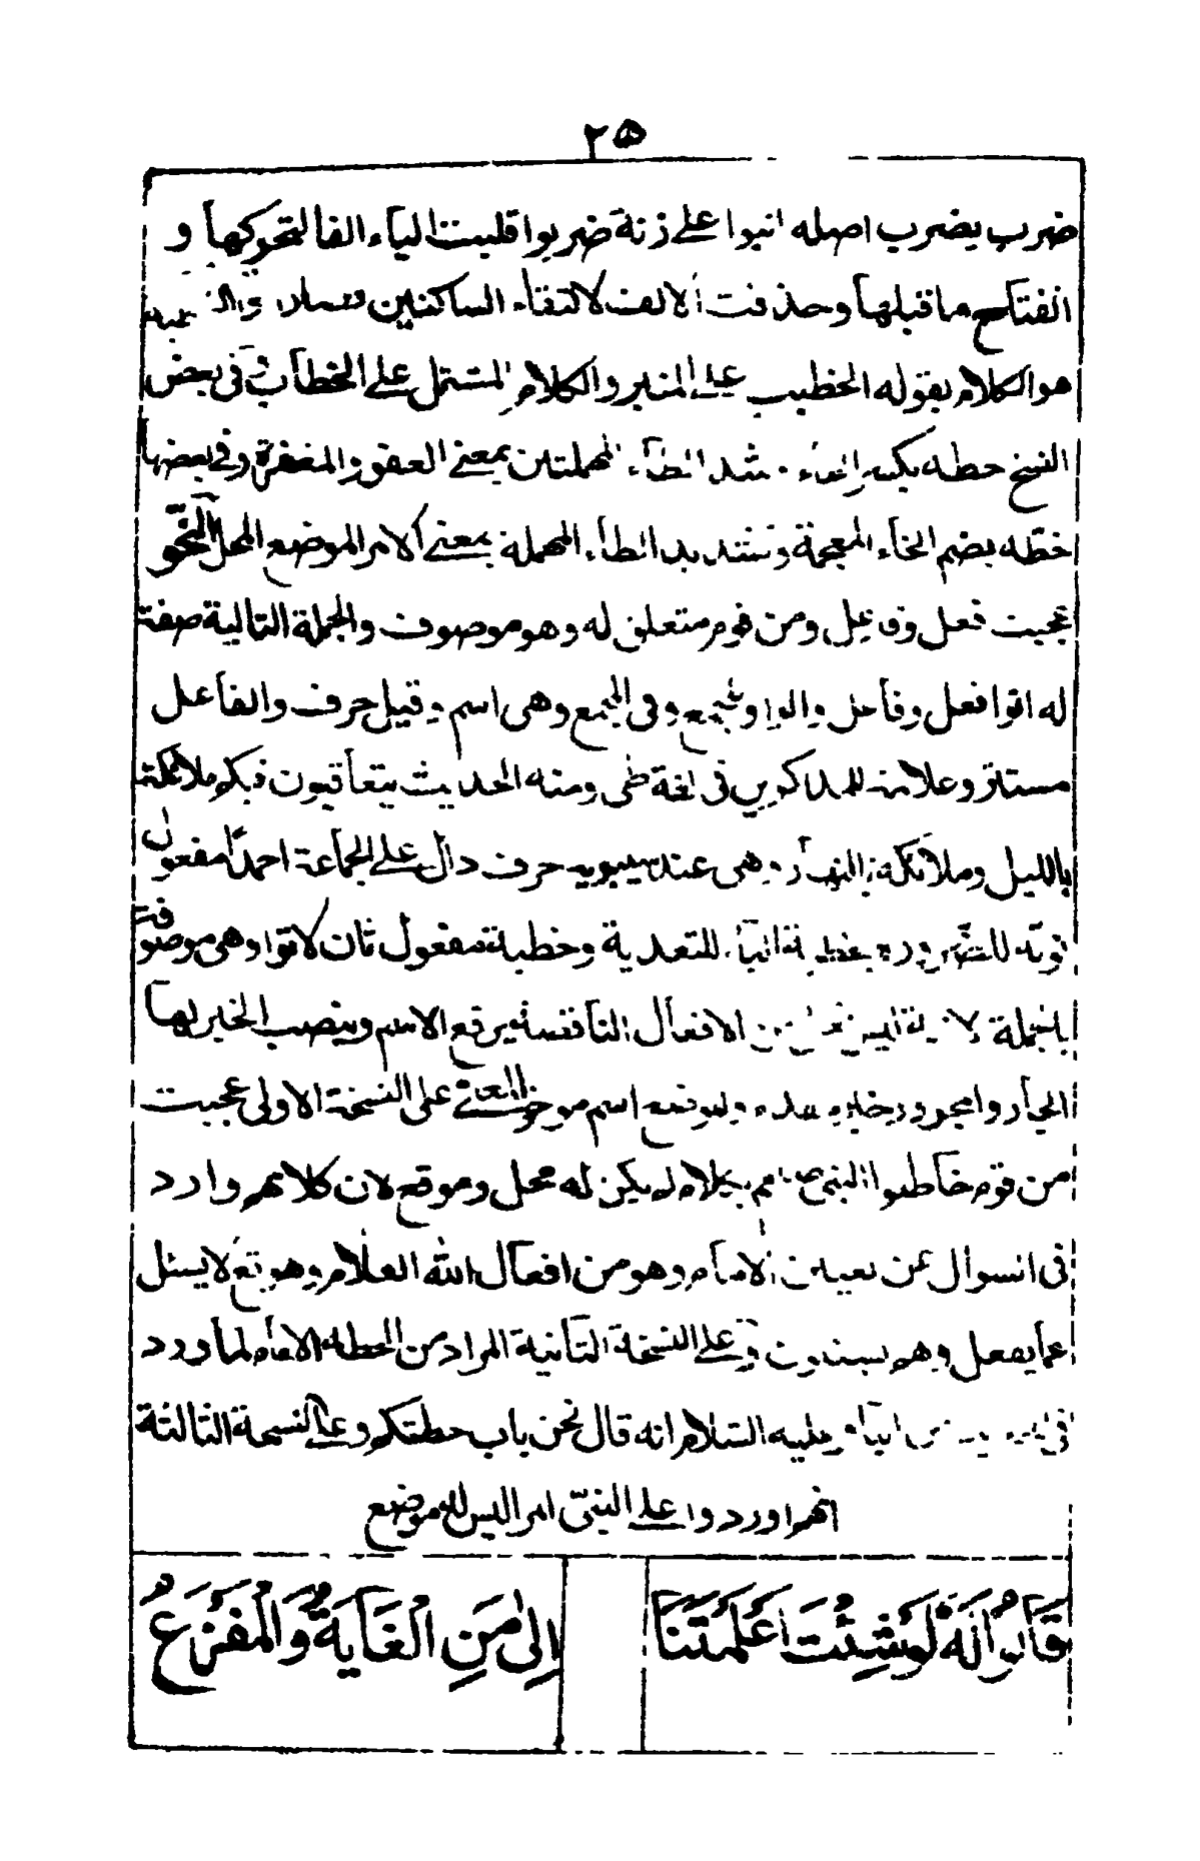 ٢٥
ضرب يضرب اصله اتيوا على زنة ضربوا قلبت الياء الفا لتحركها و
انفتاح ما قبلها وحذفت الالف لالتقاء الساكنين
هو الكلام يقوله الخطيب على المنبر والكلام المشتمل على الخطاب وفى بعض
النسخ حطه بكسر الحاء و شد الطاء المهملتين بمعنى العفو والمغفرة وفى بعضها
خطه بضم الخاء المعجمة وتشديد الطاء المهملة بمعنى الامر الموضع المحل النحو
عجبت فعل وفاعل ومن قوم متعلق له وهو موصوف والجملة التالية صفة
له اتوا فعل وفاعل والواو للجمع وفى الجمع وهى اسم وقيل حرف والفاعل
مستتر وعلامة للمذاكرين فى لغة طى ومنه الحديث يتعاقبون فيكم ملائكة
بالليل وملائكة بالنهار وهى عند سيبويه حرف دال على الجماعة احمدا مفعول
توته للضرورة بخطبة الباء للتعدية وخطبة مفعول ثان لاتوا وهى موصوفة
بالجملة الاتية ليس فعل من الافعال الناقصة يرفع الاسم وينصب الخبر لها
الجار والمجرور خبره وموضع اسم موخر المعنى على النسخة الاولى عجبت
من قوم خاطبوا النبى ص بكلام لم يكن له محل وموقع لان كلامهم وارد
فى السوال عن تعيين الامام وهو من افعال الله العلام وهو تع لا يسئل
عما يفعل وهم يسئلون وعلى النسخة الثانية المراد من الحطة الامام لما ورد
فى عليه السلام انه قال نحن باب حطتكم وعلى النسخة الثالثة
انهم اوردوا على النبى امرا ليس له موضع
قَالُوا لَهُ لَوْ شِئْتَ اَعْلَمْتَنَا
اِلىٰ مَنِ الْغَايَةُ وَالْمَفْزَعُ